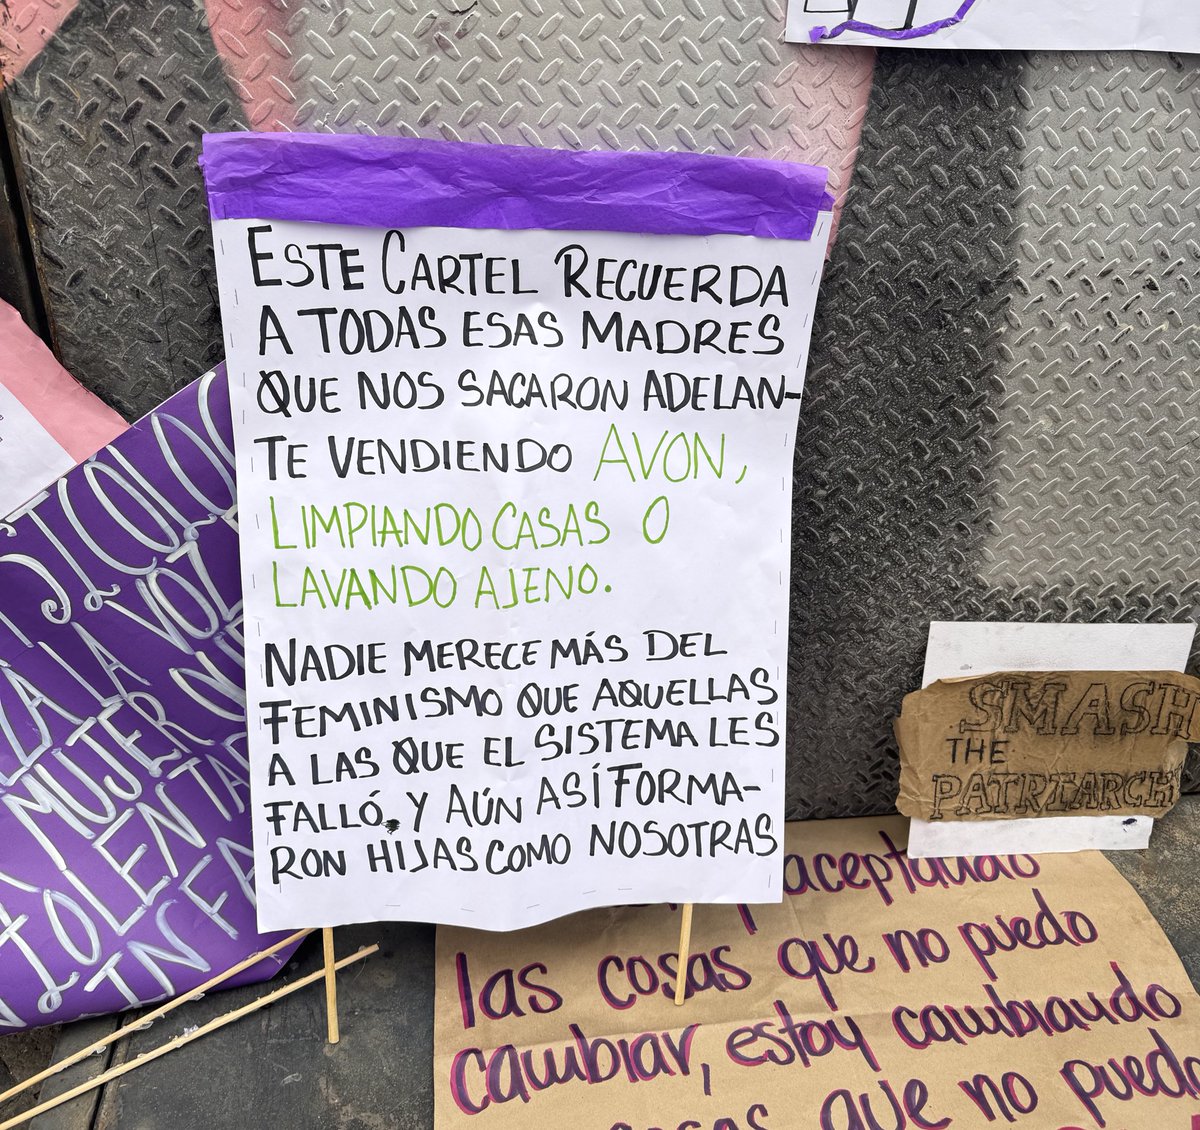 ESTE CARTEL RECUERDA
A TODAS ESAS MADRES
QUE NOS SACARON ADELAN-
TE VENDIENDO AVON,
LIMPIANDO CASAS O
LAVANDO AJENO.
NADIE MERECE MÁS DEL
FEMINISMO QUE AQUELLAS
A LAS QUE EL SISTEMA LES
FALLÓ. Y AÚN ASÍ FORMA-
RON HIJAS COMO NOSOTRAS
LA VOZ
MUJER
VIOLENTA
INFA
SMASH
THE
PATRIARCH
aceptando
las cosas que no puedo
cambiar, estoy cambiando
cosas que no puedo